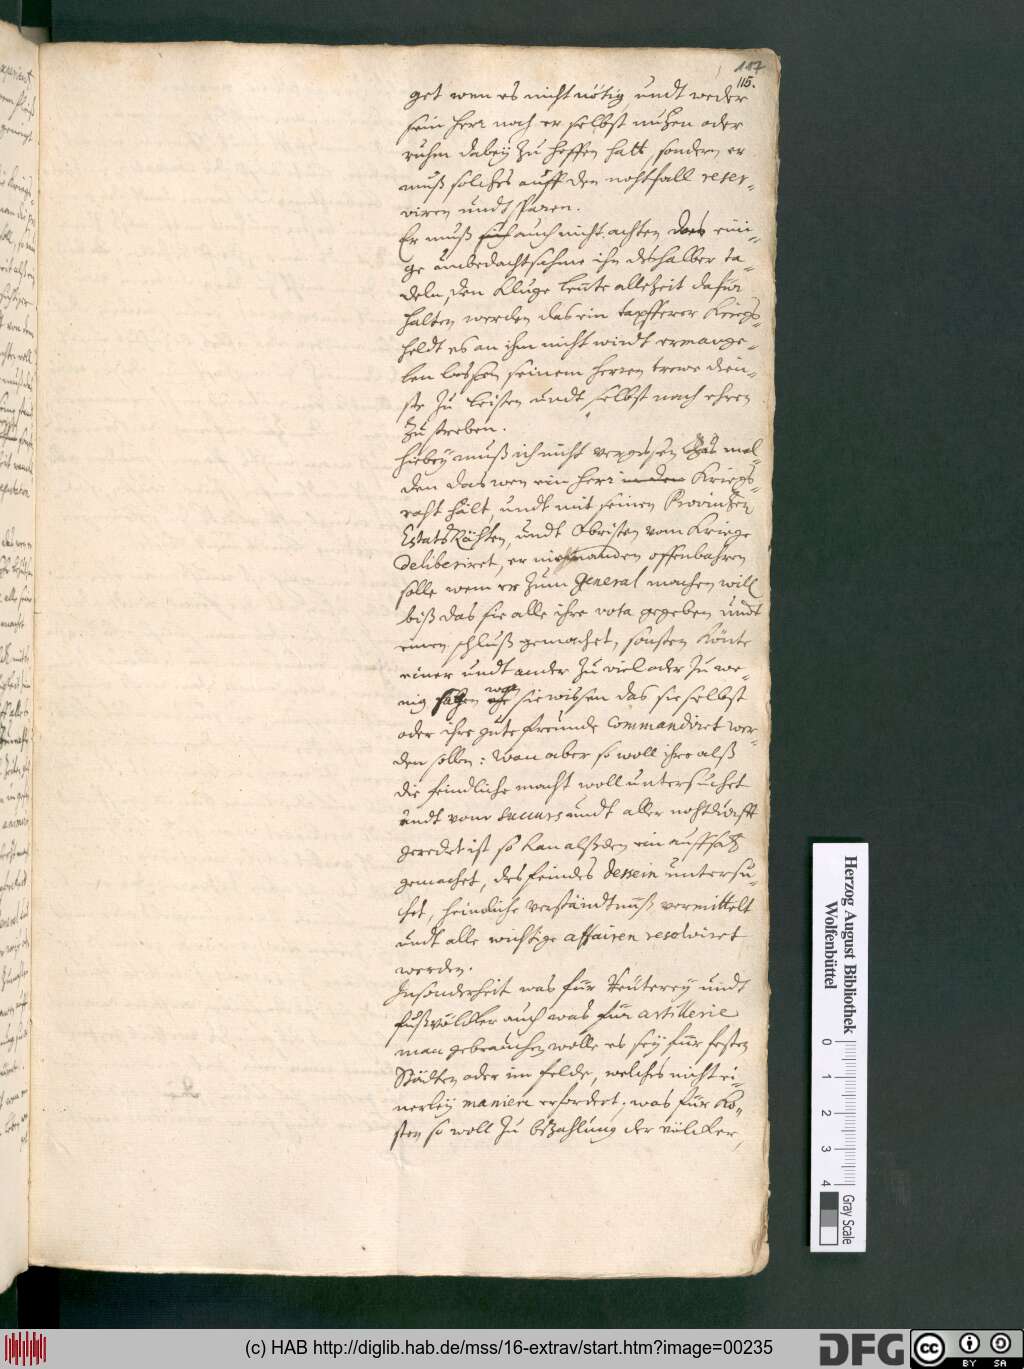 117
115.
get wen es nicht nötig undt weder
sein herr noch er selbst nutzen oder
ruhm dabeÿ zu hoffen hatt, sondern er
muß solches auff den nohtfall reser-
viren undt sparen.
Er muß sich auch nicht achten das eini-
ge unbedachtsahme ihn deshalber ta-
deln, den kluge leute allezeit dafür
halten werden das ein tapfferer kriegs-
heldt es an ihm nicht wirdt ermange-
len lassen seinem herren trewe dien-
ste zu leisten undt selbst nach ehren
zu streben.
Hiebeÿ muß ich nicht vergessen zu mel-
den das wen ein herr in den Kriegs-
raht hält, undt mit seinen Provintzen
Estats Rähten, undt Obristen vom Kriege
deliberiret, er niemanden offenbahren
solle wem er zum General machen will
biß das sie alle ihre vota gegeben undt
einen schluß gemachet, sonsten könte
einer undt ander zu viel oder zu we-
nig sagen wen sie wissen das sie selbst
oder ihre gute freunde commandiret wer-
den sollen: Wan aber so woll ihre alß
die feindliche macht woll untersuchet
undt vom succurs undt aller nohtdurfft
geredet ist so kan alßden ein auffsatz
gemachet, des feindes dessein untersu-
chet, heimliche verständtnuß vermittelt
undt alle wichtige affairen resolviret
werden.
Insonderheit was für Reutereÿ undt
fußvölcker auch was für artillerie
man gebrauchen wolle es seÿ für festen
Städten oder im felde, welches nicht ei-
nerleÿ maniere erfordert, was für Ko-
sten so woll zu bezahlung der völcker,
Herzog August Bibliothek
Wolfenbüttel
0 1 2 3 4
Gray Scale
(c) HAB http://diglib.hab.de/mss/16-extrav/start.htm?image=00235
DFG
cc
BY SA